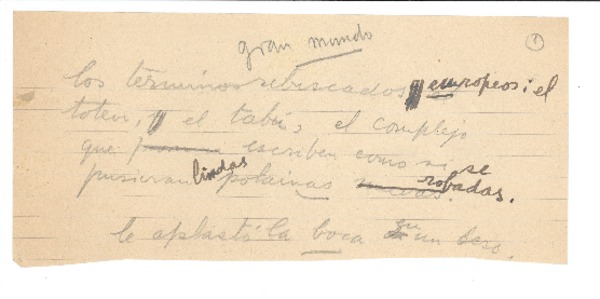 gran mundo
1
los términos rebuscados y europeos: el
totem, y el tabú, el complejo
que escriben como si se
pusieran lindas polainas robadas.
le aplastó la boca en un beso.